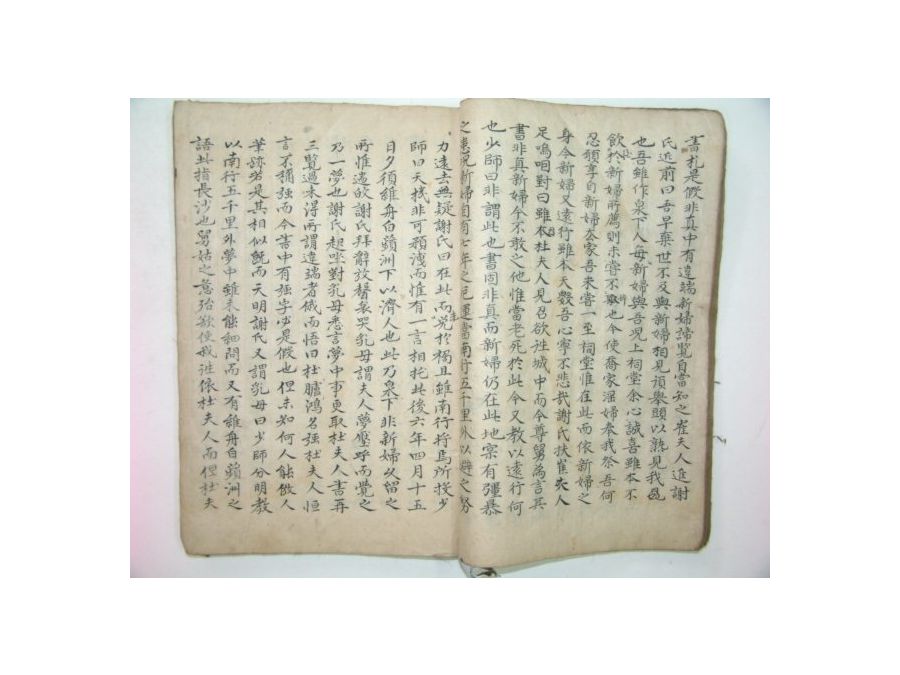 書札是假非真中有違端新婦諦覽自當知之崔夫人進謝
氏近前曰吾早棄世不及與新婦相見須擧頭以熟見我過
也吾雖作泉下人每新婦與吾兒上祠堂余心誠喜雖不
飲於新婦所薦則未嘗不也今使喬家淫婦奉我祭吾何
忍領享自新婦去家吾未嘗一至祠堂惟在此而依新婦之
身今新婦又遠行雖本天數吾心寧不悲哉謝氏扶崔夫人
足嗚咽對曰雖杜夫人見召欲往城中而今尊舅為言其
書非真新婦今不敢之他惟當老死於此今又教以遠行何
也少師曰非謂此也書固非真而新婦仍在此地寀有彊暴
之患况新婦自有七年之厄運當南行五千里外以避之努
力遠去無疑謝氏曰在此而既於獨且雖南行將焉所投少
師曰天機非可預洩而惟有一言相托此後六年四月十五
日夕須維舟白蘋洲下以濟人也此乃泉下非新婦久留之
所惟速皈謝氏拜辭放聲哀哭乳母謂夫人夢壓呼而覺之
乃一夢也謝氏起坐對乳母悉言夢中事更取杜夫人書再
三覽過未得所謂違端者俄而悟曰杜膽鴻名强杜夫人恒
言不稱强而今書中有强字必是假也但未知何人能倣人
筆跡若是其相似旣而天明謝氏又謂乳母曰少師分明教
以南行五千里外夢中雖未能細問而又有維舟白蘋洲之
語此指長沙也舅姑之意殆欲使我往依杜夫人而但杜夫